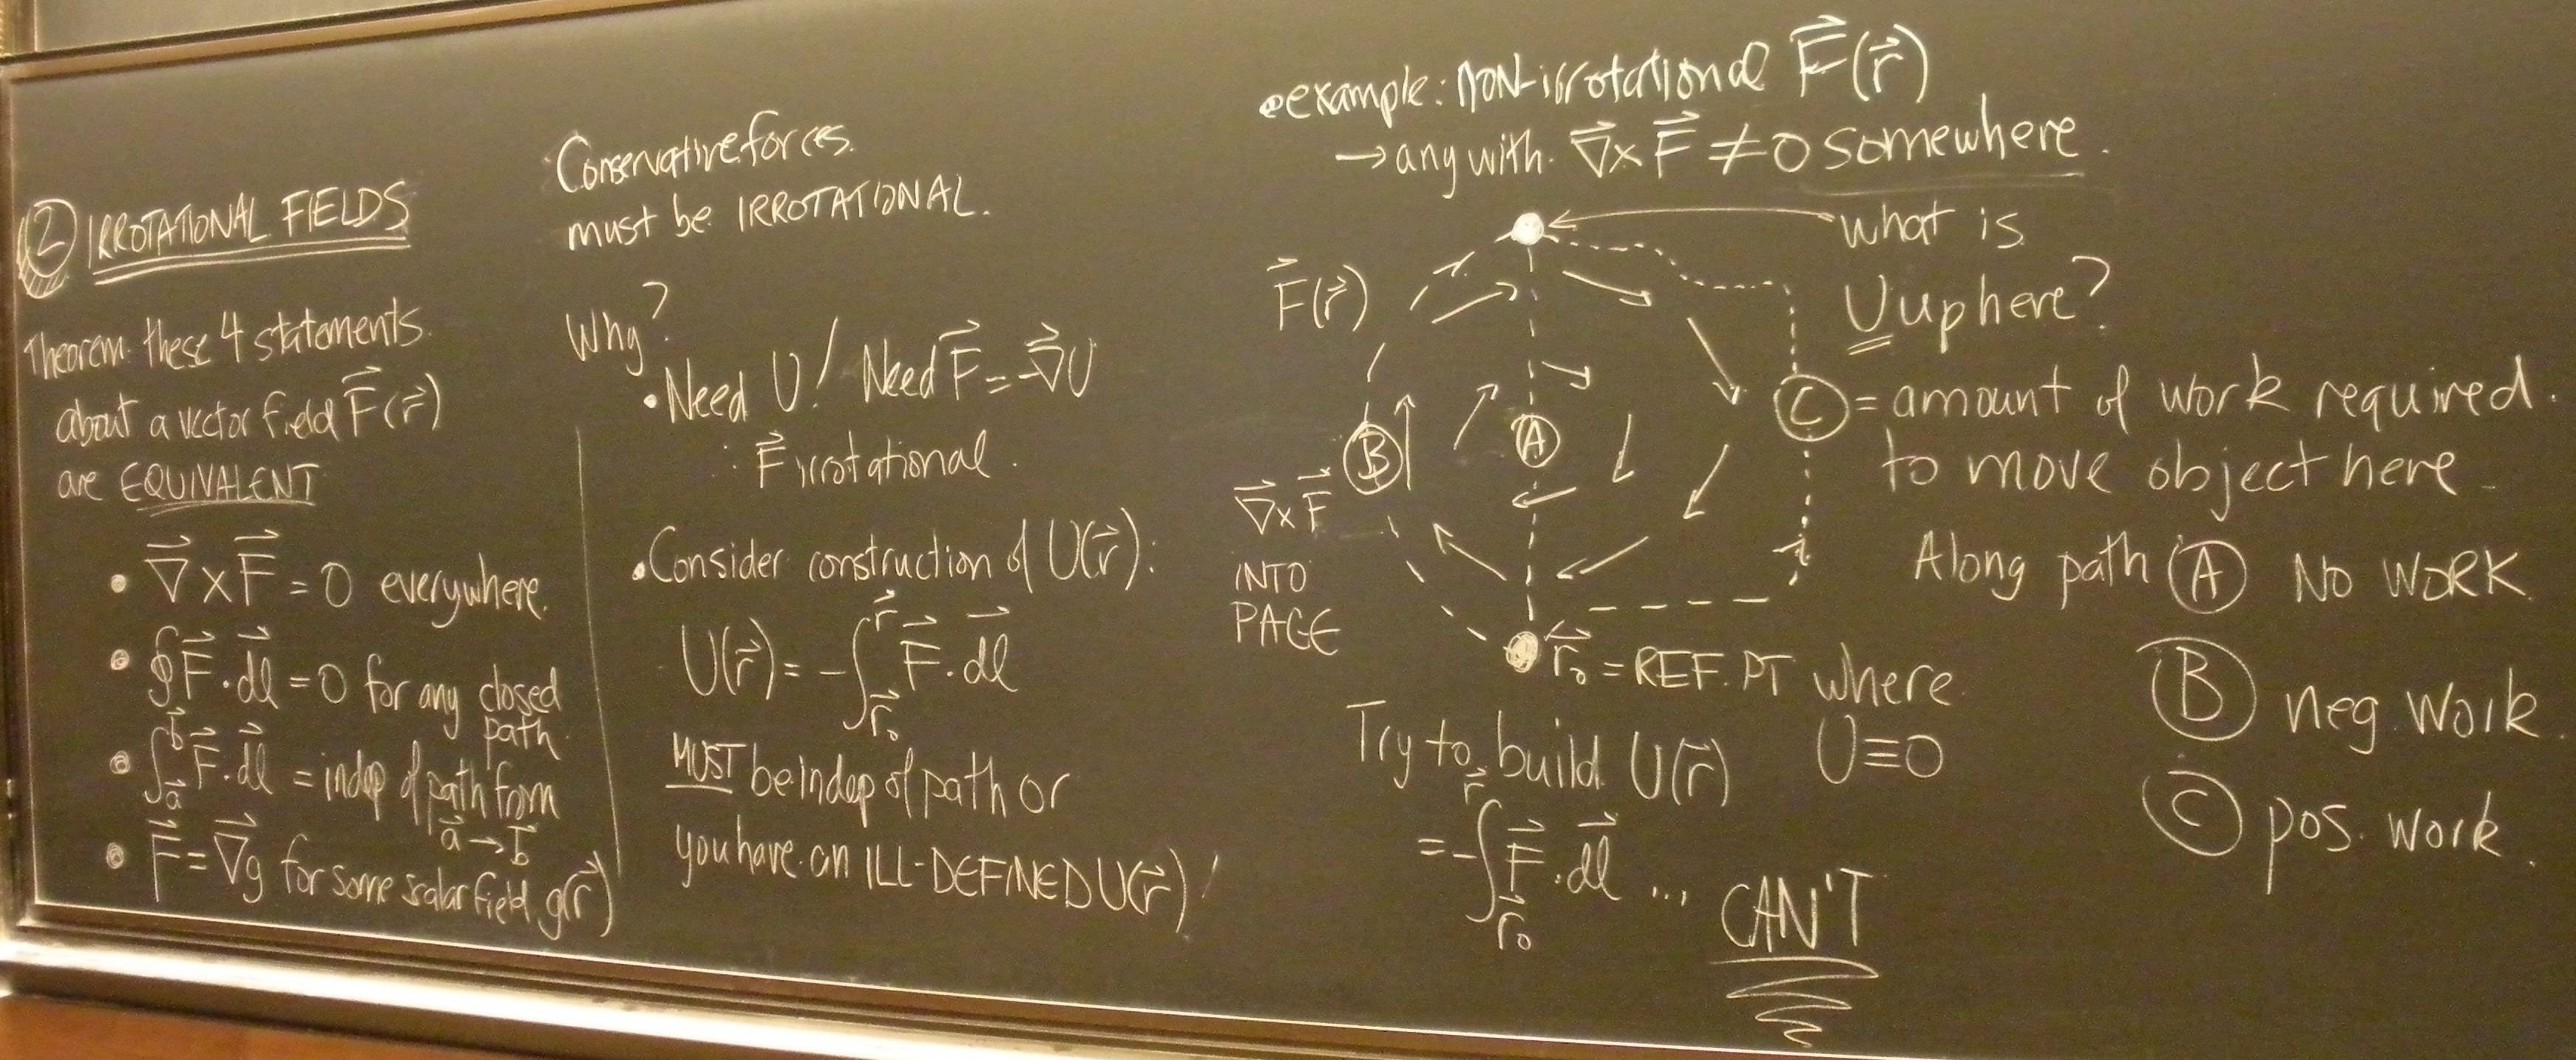 ② IRROTATIONAL FIELDS
Theorem: these 4 statements
about a vector field F⃗(r⃗)
are EQUIVALENT
• ∇⃗ × F⃗ = 0 everywhere.
• ∮F⃗·dl⃗ = 0 for any closed
path
• ∫_a⃗^b⃗ F⃗·dl⃗ = indep of path from
a⃗ → b⃗
• F⃗ = ∇⃗g for some scalar field g(r⃗)
Conservative forces
must be IRROTATIONAL.
Why?
• Need U! Need F⃗ = -∇⃗U
∴ F⃗ irrotational.
• Consider construction of U(r⃗):
U(r⃗) = -∫_r⃗₀^r⃗ F⃗·dl⃗
MUST be indep of path or
you have an ILL-DEFINED U(r⃗)!
• example: NON-irrotational F⃗(r⃗)
→ any with ∇⃗×F⃗ ≠ 0 somewhere.
what is
U up here?
F⃗(r⃗)
B
A
C = amount of work required
to move object here
∇⃗×F⃗
INTO
PAGE
Along path A NO WORK
B neg. work
C pos. work.
r⃗₀ = REF. PT where
U≡0
Try to build U(r⃗)
= -∫_r⃗₀^r⃗ F⃗·dl⃗ ... CAN'T